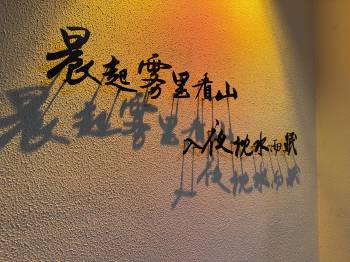 晨起雾里看山
入夜枕水而眠